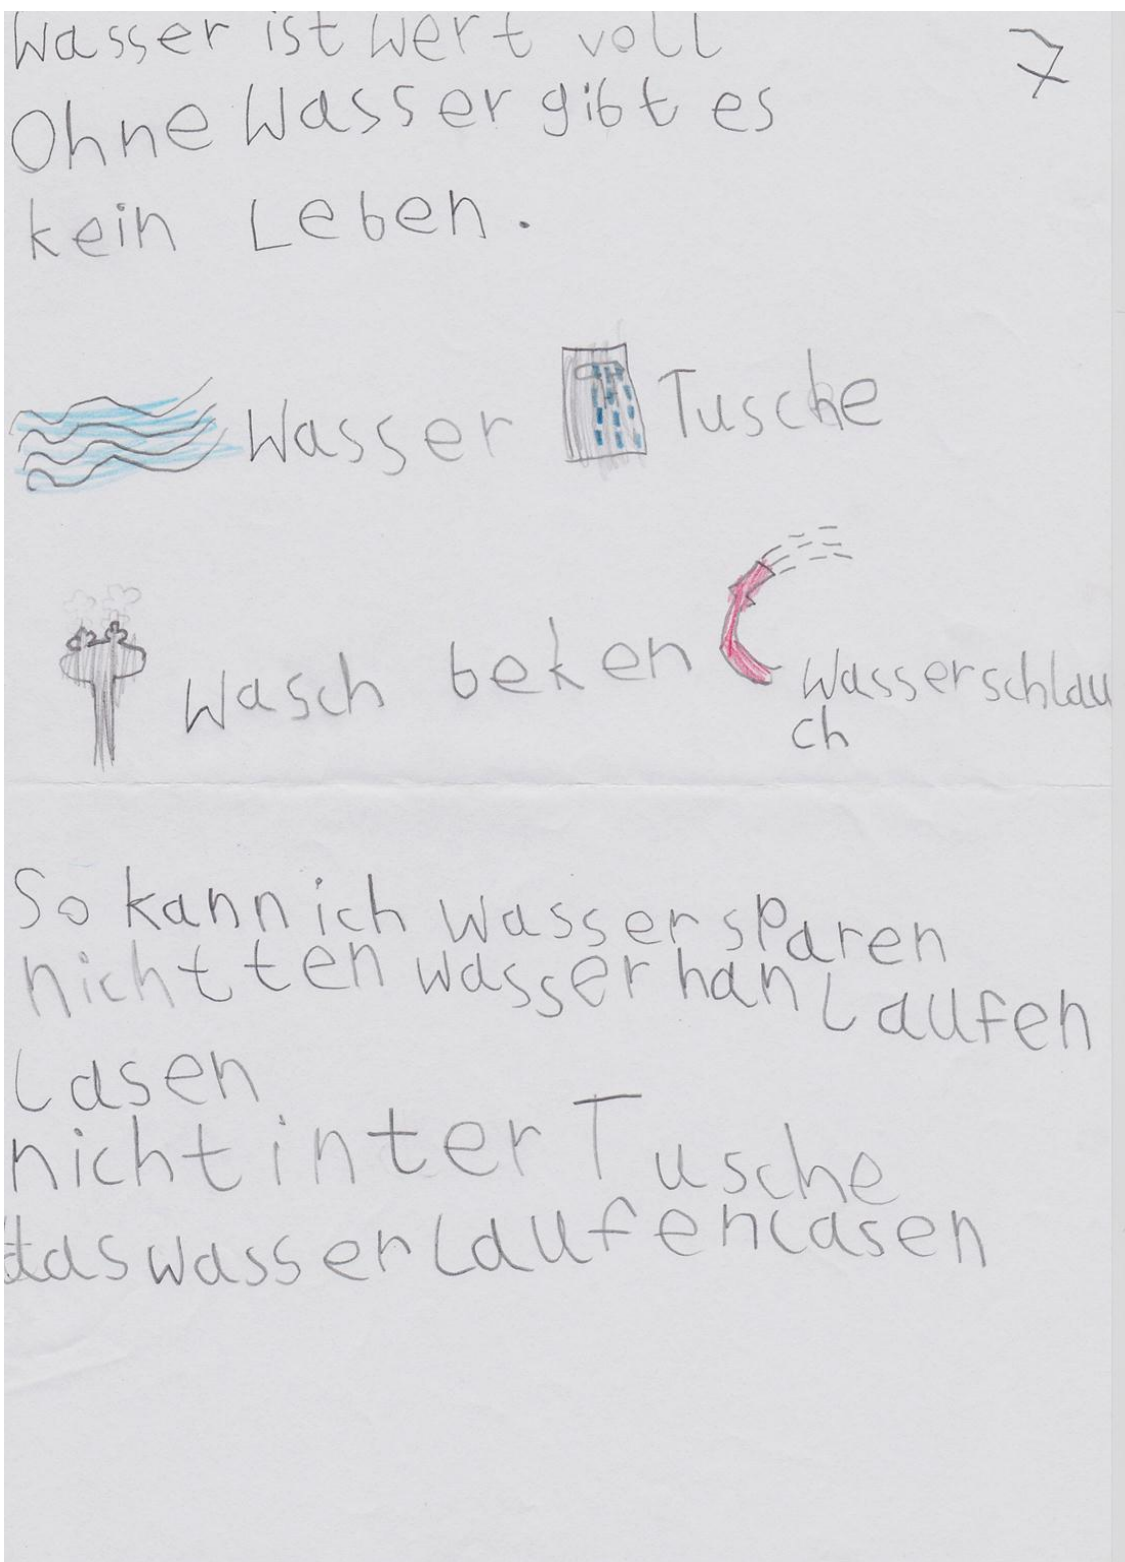 Wasser ist Wert voll
7
Ohne Wasser gibt es
kein Leben.
Wasser
Tusche
Wasch beken
Wasserschlau
ch
So kann ich wasser sparen
nicht ten wasser han laufen
lasen
nicht inter Tusche
das wasser laufen lasen